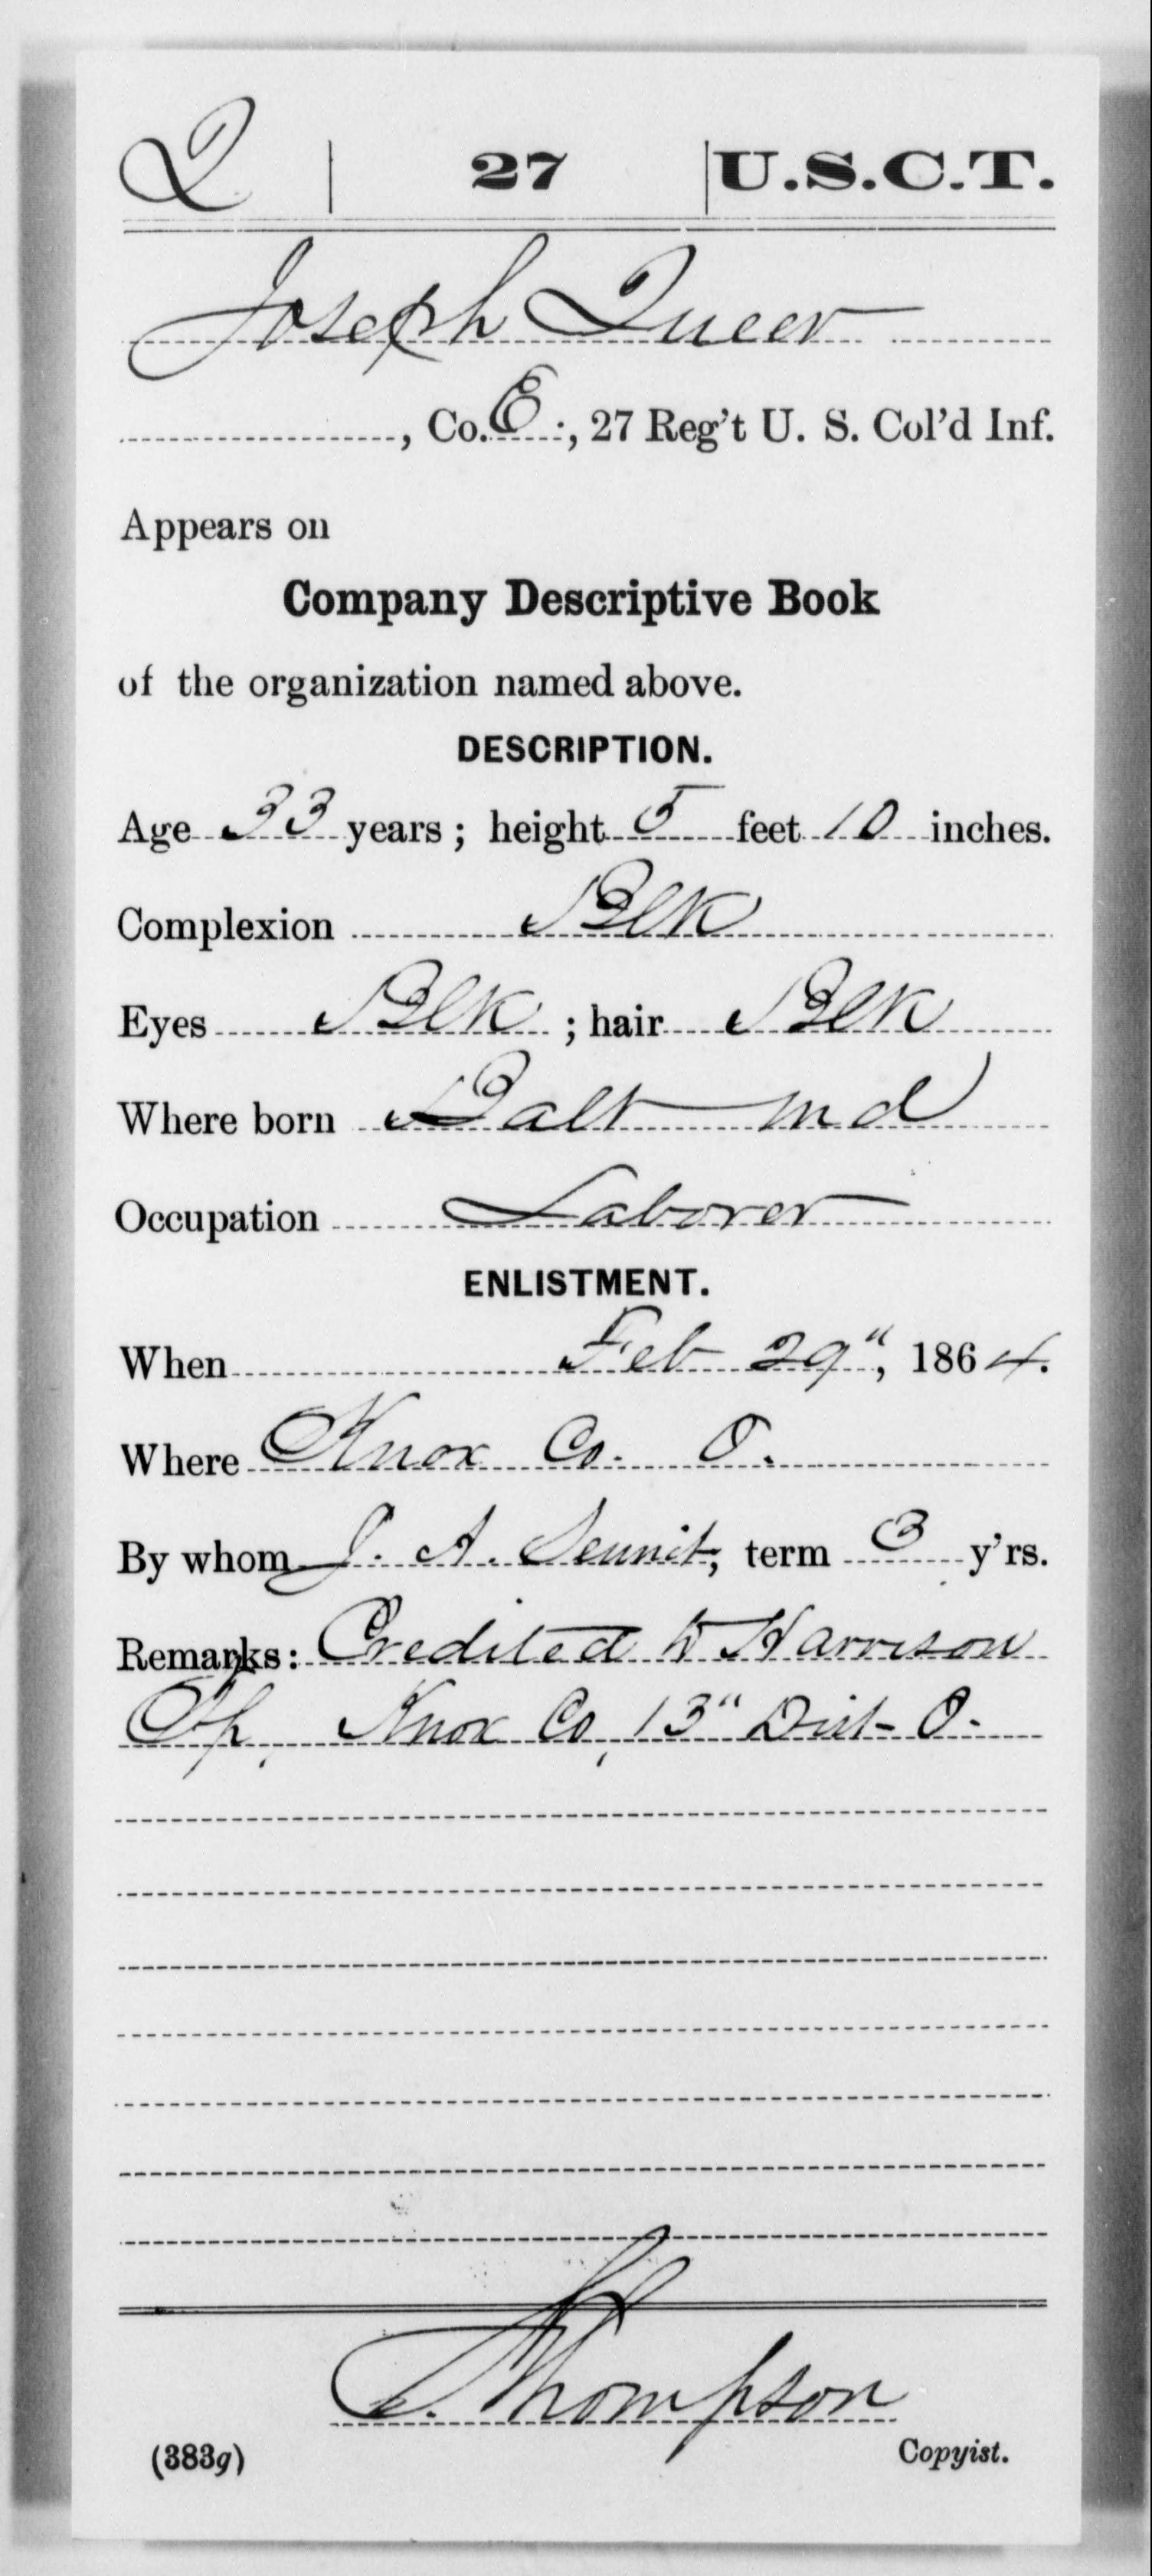 Q | 27 | U.S.C.T.
Joseph Queer
, Co. E, 27 Reg't U. S. Col'd Inf.
Appears on
Company Descriptive Book
of the organization named above.
DESCRIPTION.
Age 33 years; height 5 feet 10 inches.
Complexion Blk
Eyes Blk; hair Blk
Where born Balt Md
Occupation Laborer
ENLISTMENT.
When Feb 29", 1864.
Where Knox Co. O.
By whom J. A. Sennit; term 3 y'rs.
Remarks: Credited to Harrison
Tp, Knox Co, 13" Dist- O.
Thompson
(383g) Copyist.